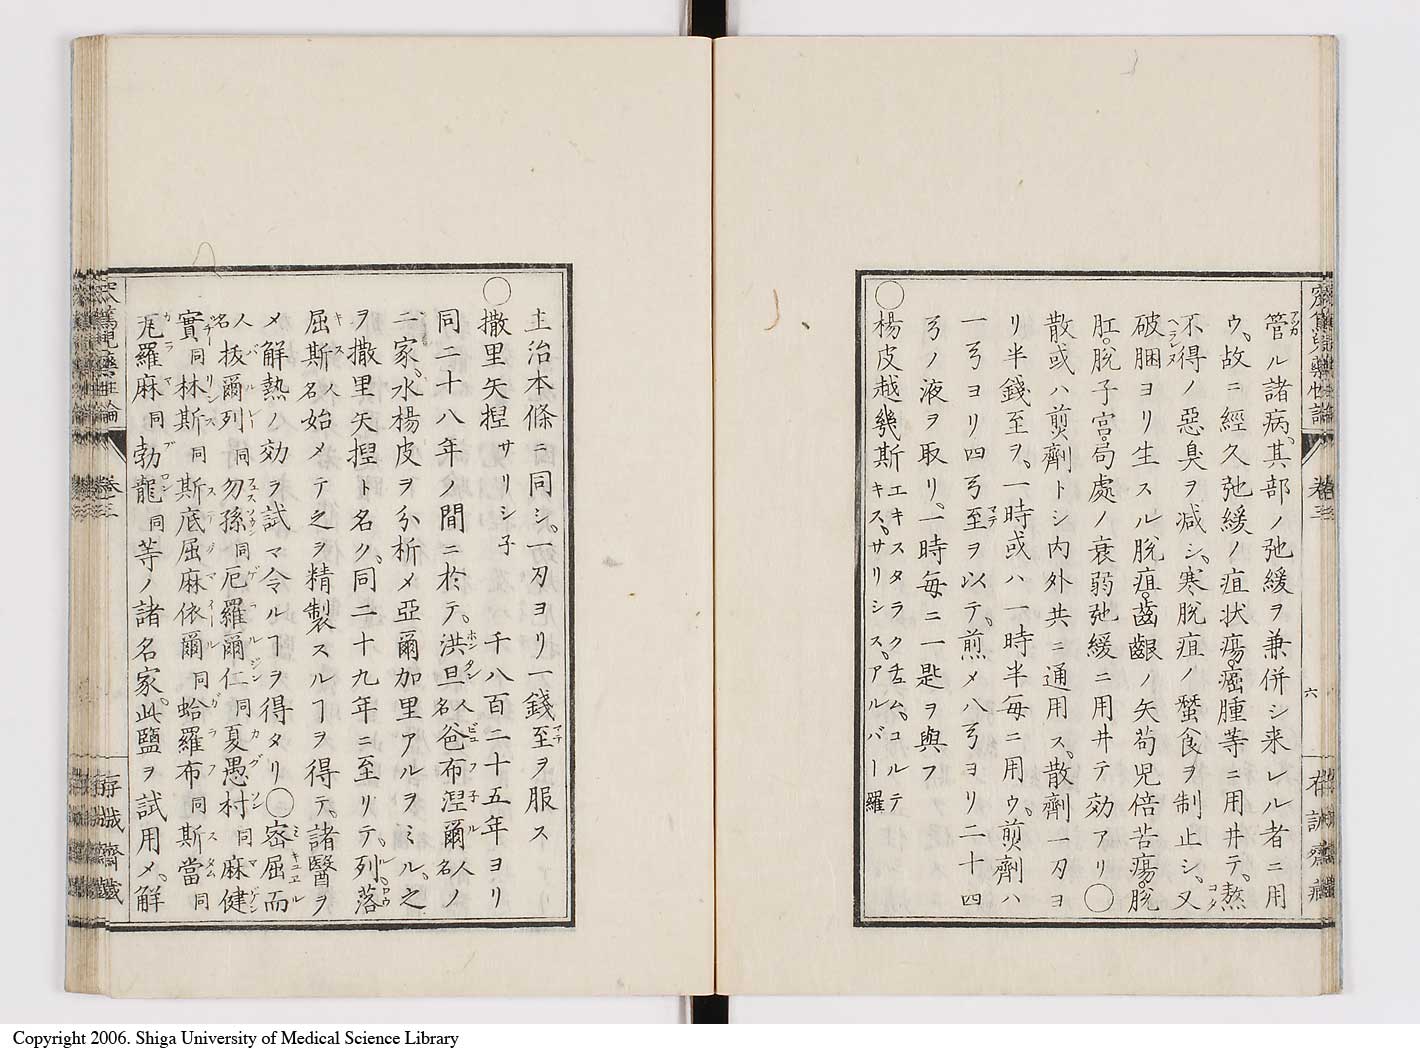 管ル諸病、其部ノ弛緩ヲ兼併シ来レル者ニ用
ウ、故ニ經久弛緩ノ疽状瘍。瘂腫等ニ用井テ、熬
不得ノ惡臭ヲ減シ、寒脱疽ノ蝕食ヲ制止シ、又
破膕ヨリ生スル脱疽。齒齦ノ失苟児倍苦瘍。脱
肛。脱子宮。局處ノ衰弱弛緩ニ用井テ効アリ○
散或ハ煎劑トシ内外共ニ通用ス、散劑一刄ヨ
リ半錢至ヲ、一時或ハ一時半毎ニ用ウ、煎劑ハ
一弓ヨリ四弓至ヲ以テ、煎メ八弓ヨリ二十四
弓ノ液ヲ取リ、一時毎ニ一匙ヲ與フ
○楊皮越幾斯 エキスタラクチュム、コルテキス、サリシス、アルバー 羅
六
卷三
主治本條ニ同シ、一刄ヨリ一錢至ヲ服ス
○撒里矢捏 サリシ子 千八百二十五年ヨリ
同二十八年ノ間ニ於テ、洪旦人名爸布涅爾人名ノ
二家、水楊皮ヲ分析メ亞爾加里アルヲミル、之
ヲ撒里矢捏ト名ク、同二十九年ニ至リテ、列落
屈斯人名始メテ之ヲ精製スルヿヲ得テ、諸醫ヲ
メ解熱ノ効ヲ試マ令ルヿヲ得タリ○密屈而
人名拔爾列同勿孫同厄羅爾仁同夏愚村同麻健
實同林斯同斯底屈麻依爾同蛤羅布同斯當同
瓦羅麻同勃龍同等ノ諸名家、此鹽ヲ試用メ、解
卷三
Copyright 2006. Shiga University of Medical Science Library